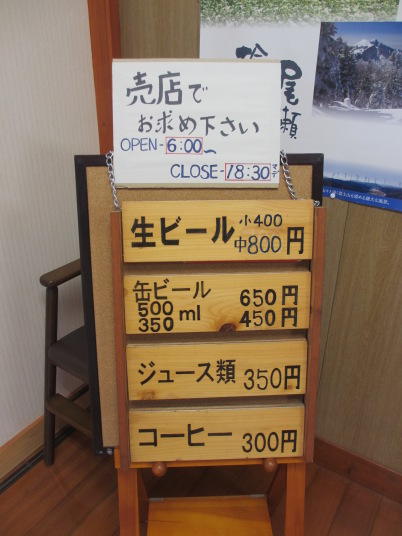 売店で
お求め下さい
OPEN-6:00〜
CLOSE-18:30マデ
生ビール 小400
中800円
缶ビール
500 ml 650円
350 450円
ジュース類 350円
コーヒー 300円
尾瀬